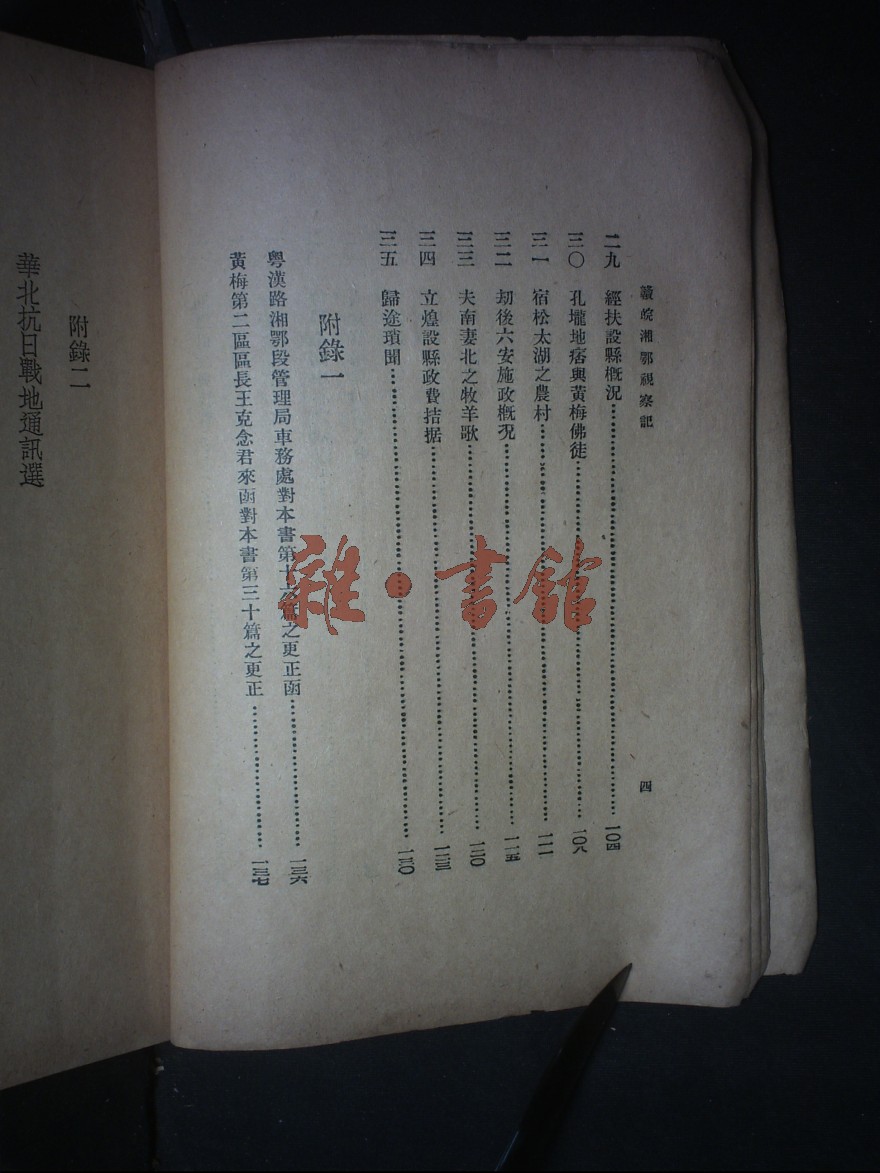 贛皖湘鄂視察記
四
二九　經扶設縣概況……一〇四
三〇　孔壠地痞與黃梅佛徒……一〇八
三一　宿松太湖之農村……一一一
三二　劫後六安施政概況……一一五
三三　夫南妻北之牧羊歌……一二〇
三四　立煌設縣政費拮据……一二三
三五　歸途瑣聞……一三〇
附錄一
粵漢路湘鄂段管理局車務處對本書第十篇之更正函……一三六
黃梅第二區區長王克念君來函對本書第三十篇之更正……一三七
附錄二
華北抗日戰地通訊選
雜·書館